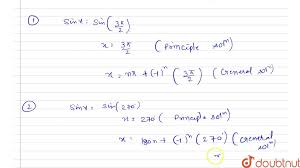 ① Sinx = Sin(3π/2)
x = 3π/2 (Principle solⁿ)
x = nπ + (-1)ⁿ (3π/2) (General solⁿ)
② Sinx = sin(270°)
x = 270° (Principle solⁿ)
x = 180n + (-1)ⁿ (270°) (General solⁿ)
doubtnut